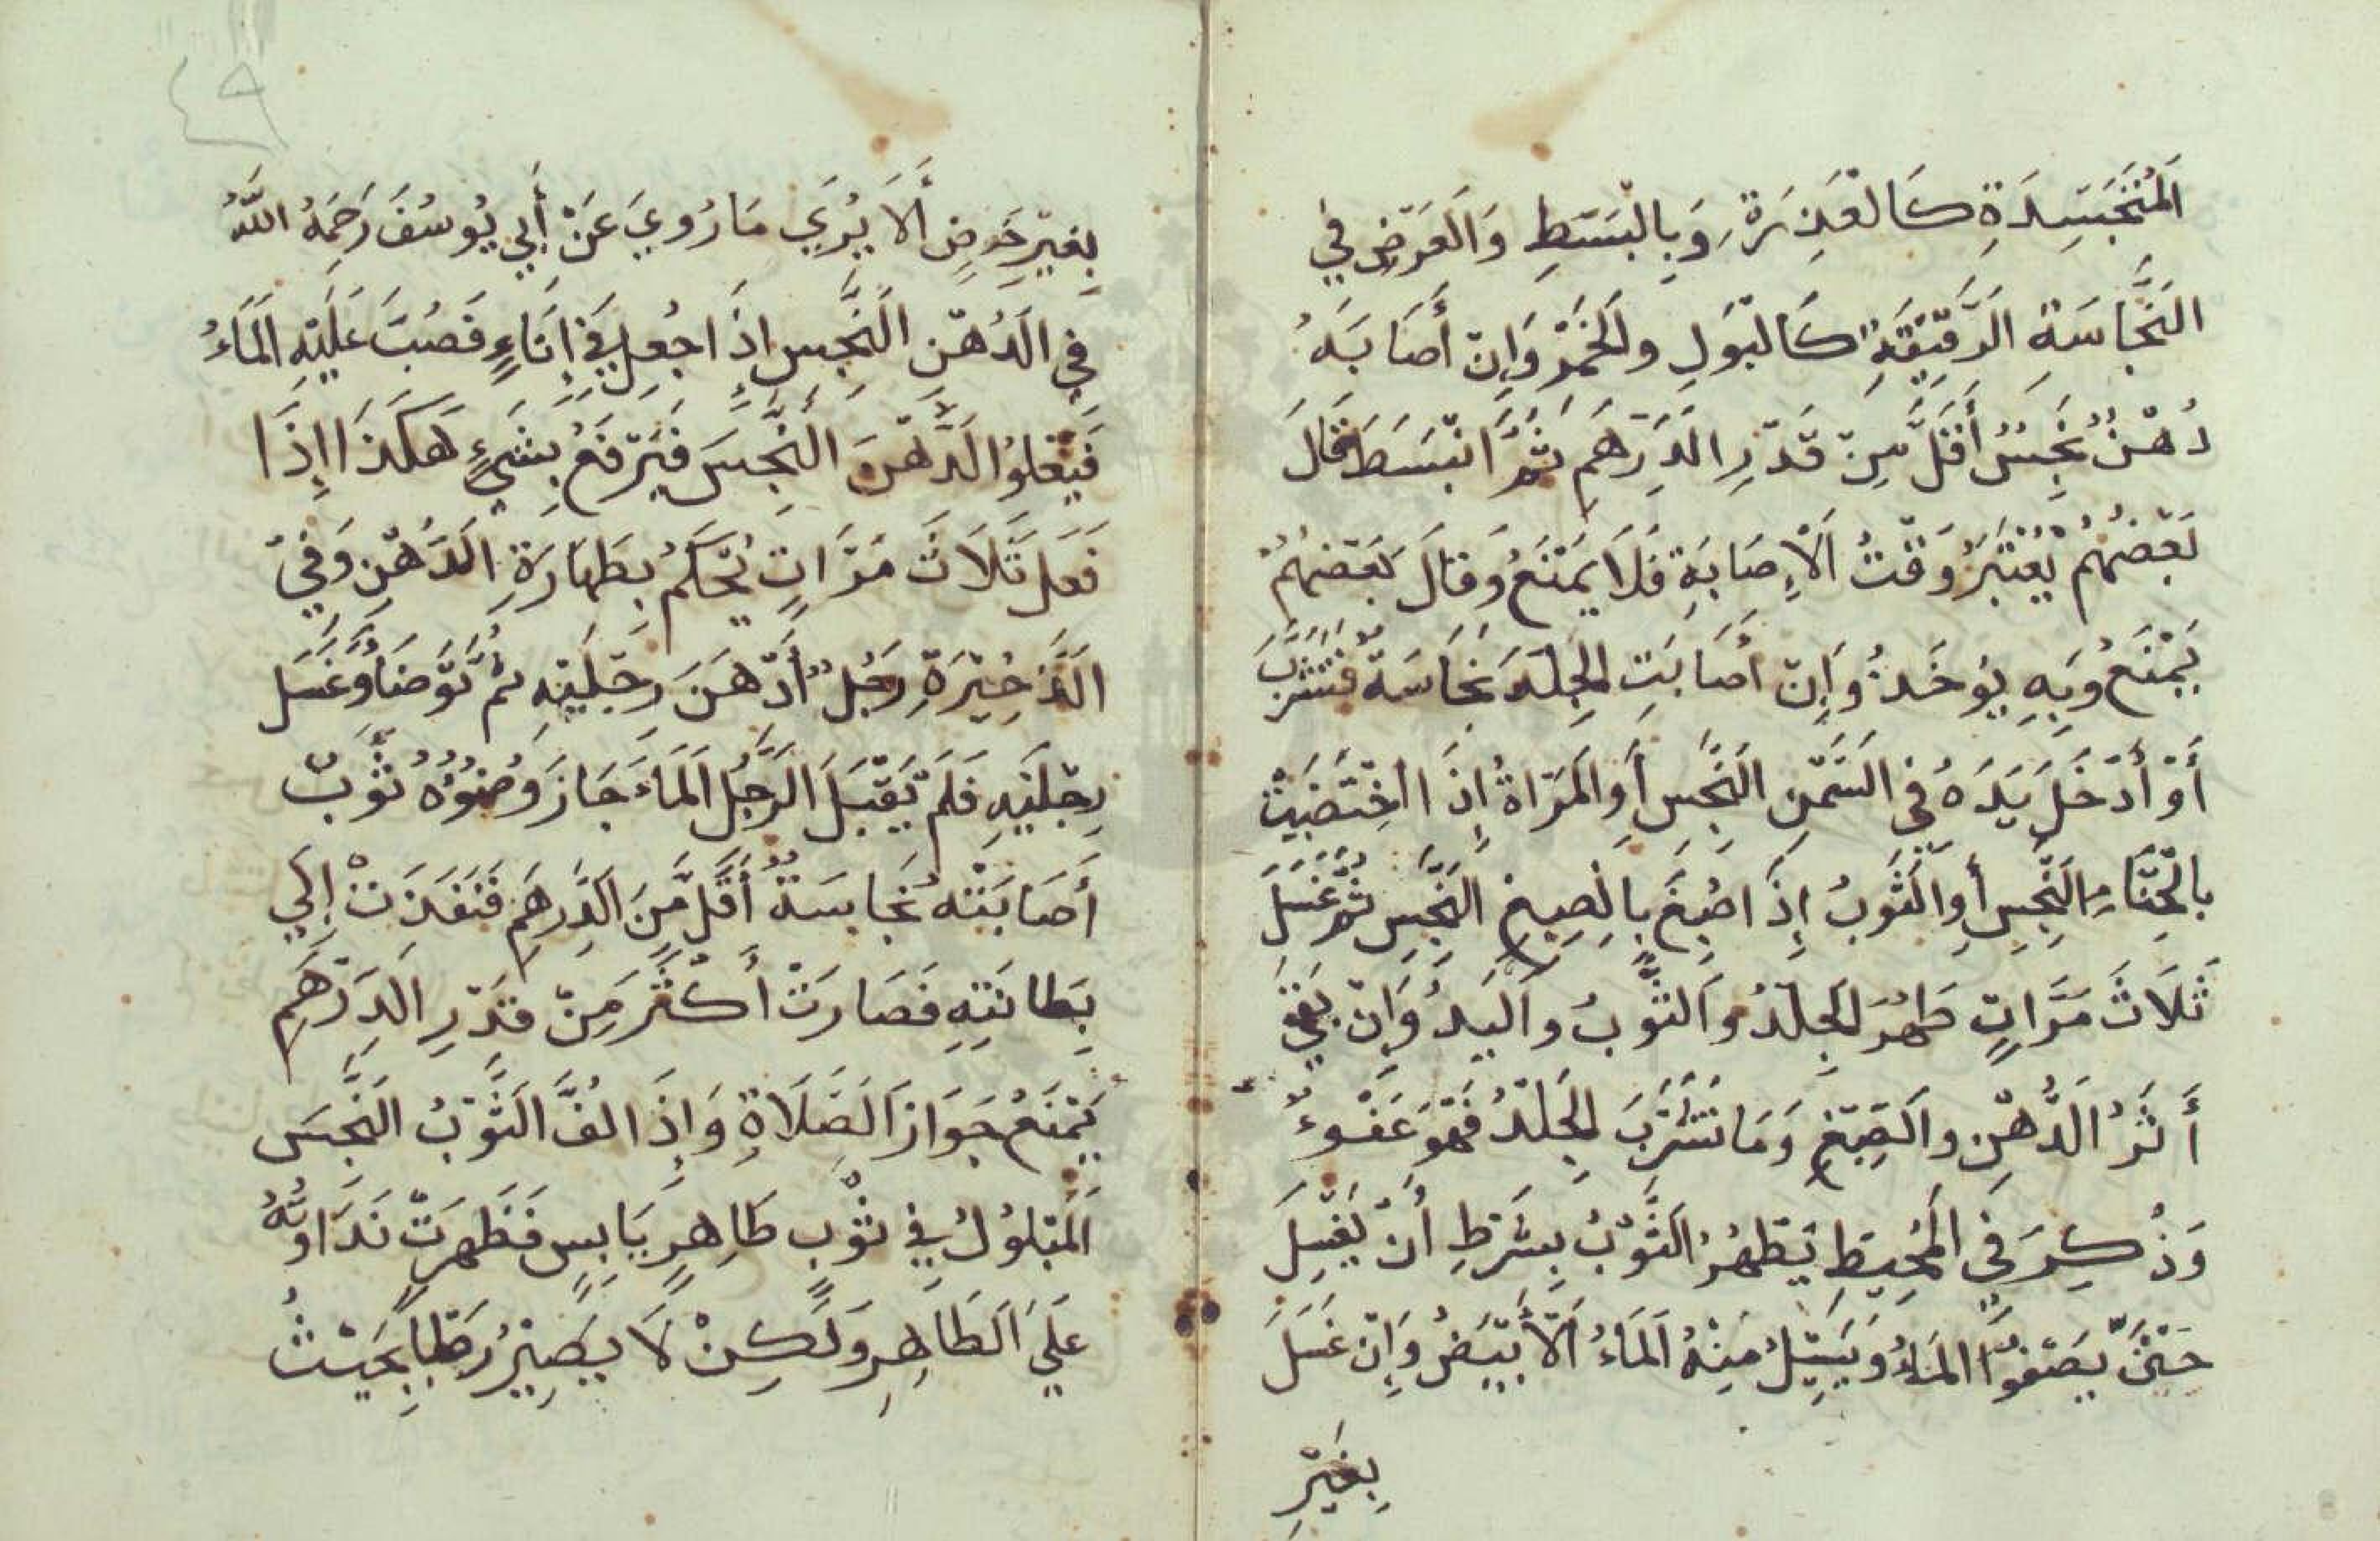 اَلْمُتَجَسِّدَةِ كَالْعَذِرَةِ وَبِالْبَسْطِ وَالْعَرْضِ فِي
النَّجَاسَةِ الرَّقِيْقَةِ كَالْبَوْلِ والْخَمْرِ وَإِنْ أَصَابَهُ
دُهْنٌ نَجِسٌ أَقَلَّ مِنْ قَدْرِ الدِّرْهَمِ ثُمَّ انْبَسَطَ قَالَ
بَعْضُهُمْ يُعْتَبَرُ وَقْتُ الْإِصَابَةِ فَلَا يَمْنَعُ وَقَالَ بَعْضُهُمْ
يَمْنَعُ وَبِهِ يُؤخَذُ وَإِنْ أَصَابَتِ الْجِلْدَ نَجَاسَةٌ فَتَشَرَّبَ
أَوْ أَدْخَلَ يَدَهُ فِي السَّمْنِ النَّجِسِ أَوِ الْمَرْاةُ إِذَا اخْتَضَبَتْ
بِالْحِنَّاءِ النَّجِسِ أَوِ الثَّوْبُ إِذَا صُبِغَ بِالصِبْغِ النَّجِسِ ثُمَّ غَسَلَ
ثَلَاثَ مَرَّاتٍ طَهُرَ الْجِلْدُ وَالثَّوْبُ وَالْيَدُ وَإِنْ بَقِيَ
أَثَرُ الدُّهْنِ وَالصِّبْغِ وَمَا تَشَرَّبَ الْجِلْدُ فَهُوَ عَفْوٌ
وَذُكِرَ فِي الْمُحِيطِ يَطْهُرُ الثَّوْبُ بِشَرْطِ أَنْ يَغْسِلَ
حَتَّى يَصْفُوَ الْمَاءُ وَيَسِيْلُ مِنْهُ الْمَاءُ الْأَبْيَضُ وَإِنْ غَسَلَ
بِغَيْرِ
بِغَيْرِ حَرِضٍ أَلَا يُرَي مَا رُوِيَ عَنْ أَبِي يُوسُفَ رَحِمَهُ اللَّهُ
فِي الدُّهْنِ النَّجِسِ إِذَا جُعِلَ فِي إِنَاءٍ فَصُبَّ عَلَيْهِ الْمَاءُ
فَيَعْلُو الدُّهْنَ النَّجِسَ فَيَرْفَعُ بِشَيْءٍ هَكَذَا إِذَا
فَعَلَ ثَلَاثَ مَرَّاتٍ يُحْكَمُ بِطَهَارَةِ الدُّهْنِ وَفِي
الذَّخِيْرَةِ رَجُلٌ أَدْهَنَ رِجْلَيْهِ ثُمَّ تَوَضَّأَ وَغَسَلَ
رِجْلَيْهِ فَلَمْ يَقْبَلَ الرِّجْلُ الْمَاءَ جَازَ وُضُوْؤُهُ ثَوْبٌ
أَصَابَتْهُ نَجَاسَةٌ أَقَلَّ مِنَ الدِّرْهَمِ فَنَفَذَتْ إِلَي
بِطَانَتِهِ فَصَارَتْ أَكْثَرَ مِنْ قَدْرِ الدِّرْهَمِ
يَمْنَعُ جَوَازَ الصَّلَاةِ وَإِذَا لُفَّ الثَّوْبُ النَّجِسَ
الْمَبْلُوْلُ فِي ثَوْبٍ طَاهِرٍ يَابِسٍ فَظَهَرَتْ نَدَاوَتُهُ
عَلَيَ الطَّاهِرِ وَلَكِنْ لَا يَصِيْرُ رَطْبًا بِحَيْثُ
٤٩